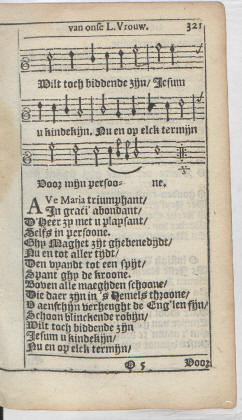 van onse L. Vrouw. 321
Wilt toch biddende zijn/ Jesum
u kindekijn. Nu en op elck termijn
Voor mijn persoo- ne.
AVe Maria triumphant/
In graci' abondant/
D'Heer zp met u playsant/
Selfs in persoone.
Ghy Maghet zijt ghebenedijdt/
Nu en tot aller tijdt/
Den vyandt tot een spijt/
Spant ghy de kroone.
Boven alle maeghden schoone/
Die daer zijn in 's Hemels throone/
D'aenschijn verheught de Eng'len fijn/
Schoon blinckende robijn/
Wilt toch biddende zijn
Jesum u kindekijn/
Nu en op elck termijn/
O 5 Voor